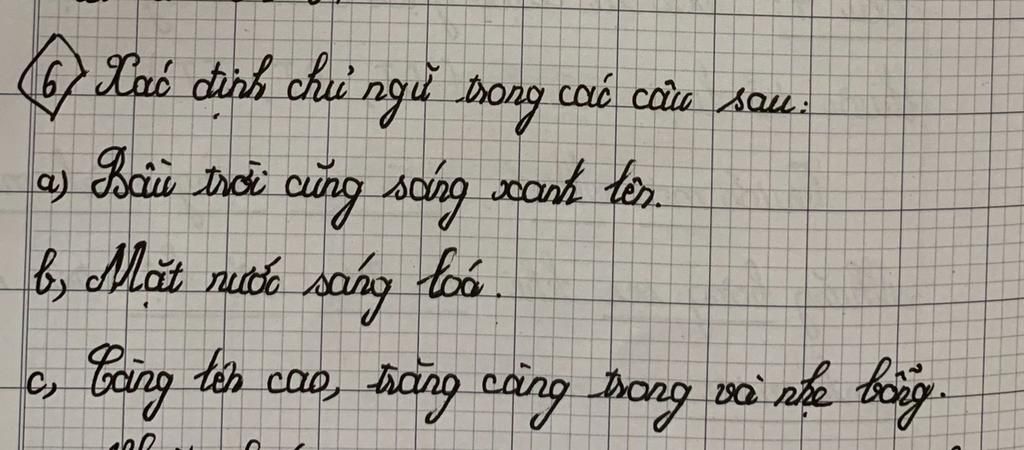 6) Xác định chủ ngữ trong các câu sau:
a) Bầu trời cũng sáng xanh lên.
b, Mặt nước sáng loá.
c, Càng lên cao, trăng càng trong và nhẹ bỗng.